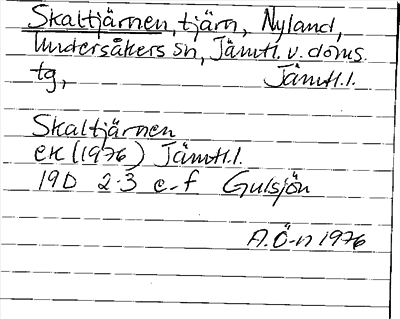 Skaltjärnen, tjärn, Nyland,
Undersåkers sn, Jämtl. v. doms.
tg, Jämtl.l.
Skaltjärnen
ek (1976) Jämtl.l.
19D 2-3 e-f Gulsjön
A.Ö-n 1976